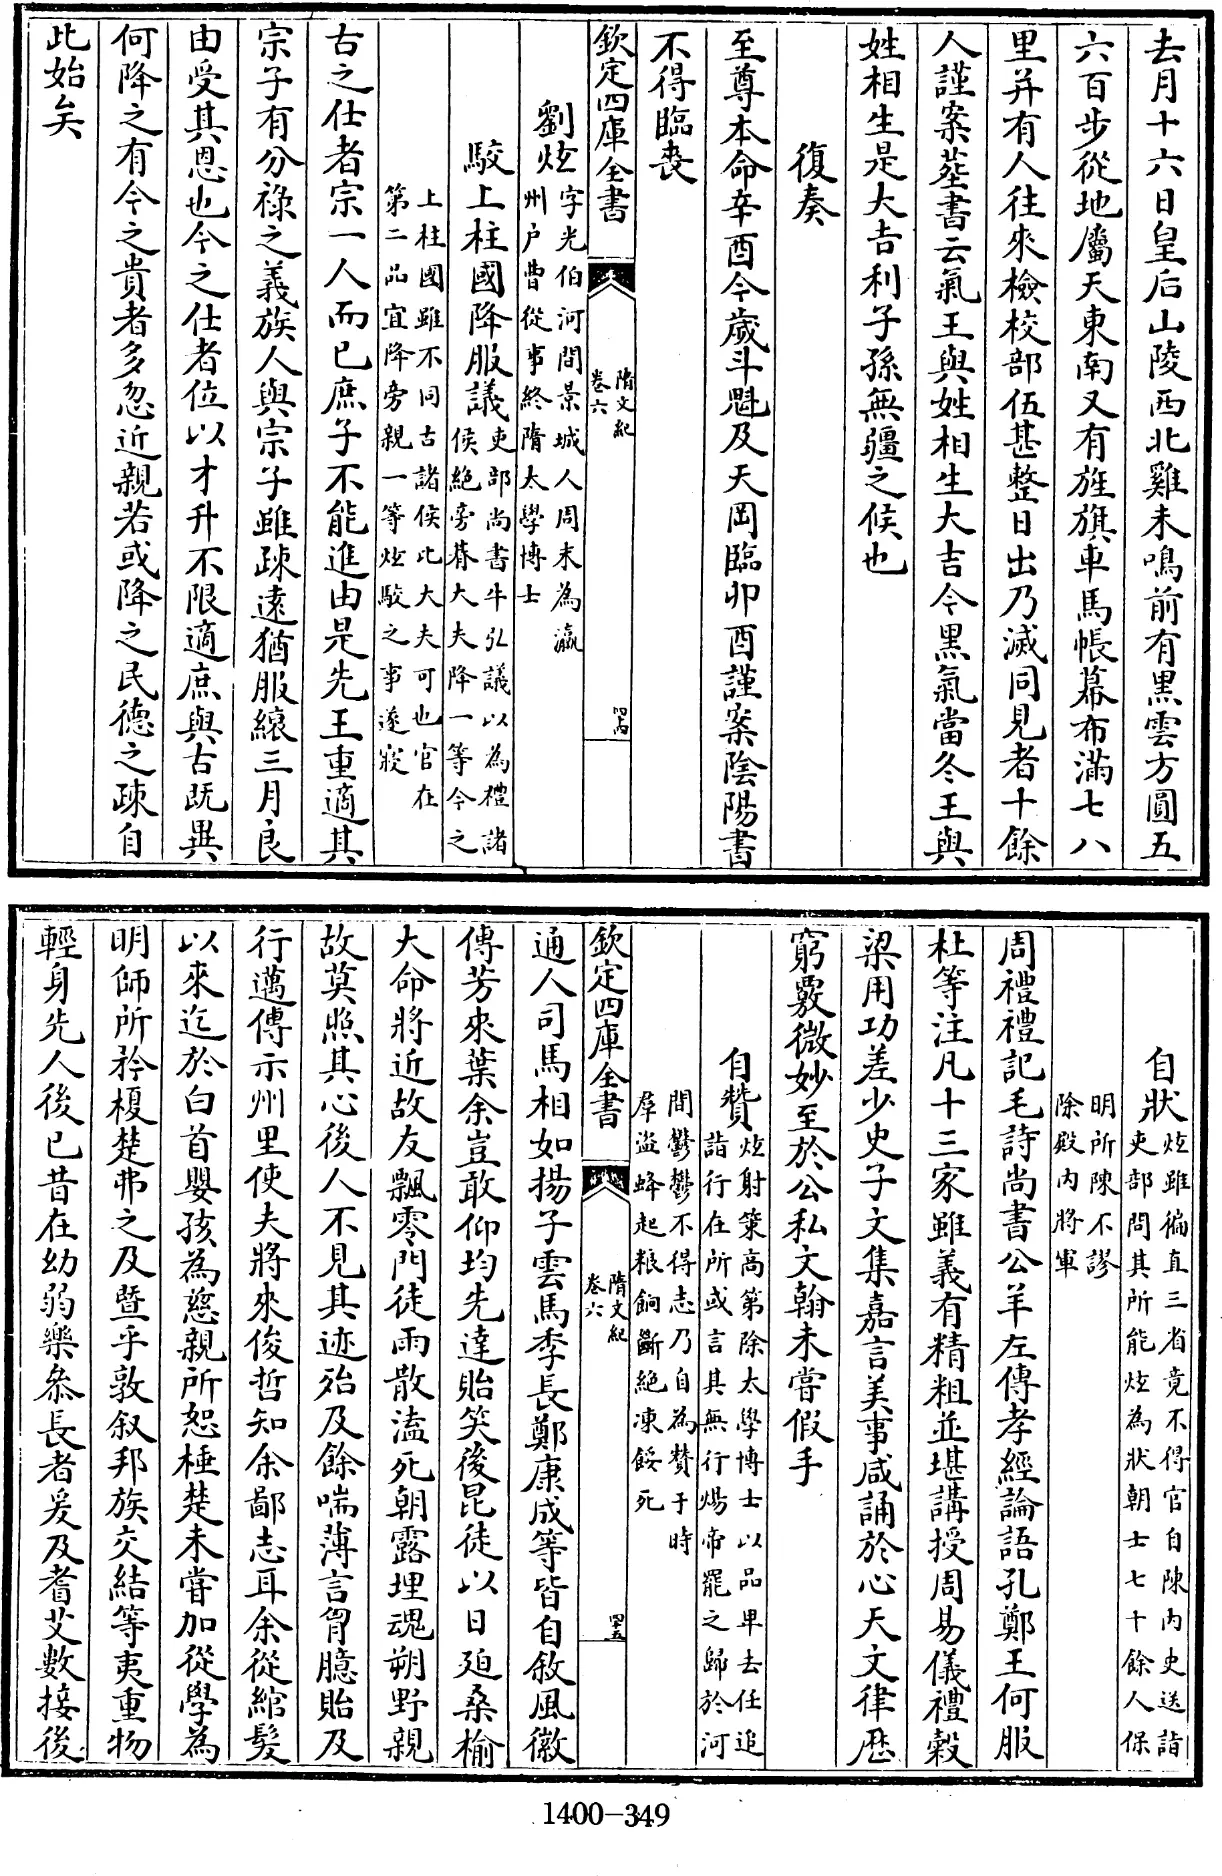 去月十六日皇后山陵西北雞未鳴前有黒雲方圓五
六百步從地屬天東南又有旌旗車馬帳幕布滿七八
里并有人往來檢校部伍甚整日出乃滅同見者十餘
人謹案塟書云氣王與姓相生大吉今黒氣當冬王與
姓相生是大吉利子孫無疆之候也
復奏
至尊本命辛酉今歲斗魁及天岡臨卯酉謹案陰陽書
不得臨喪
欽定四庫全書
隋文紀
卷六
四十四
劉炫
字光伯河間景城人周末為瀛
州户曹從事終隋太學博士
駮上柱國降服議
吏部尚書牛弘議以為禮諸
侯絶旁朞大夫降一等今之
上柱國雖不同古諸侯比大夫可也官在
第二品宜降旁親一等炫駮之事遂寢
古之仕者宗一人而已庶子不能進由是先王重適其
宗子有分祿之義族人與宗子雖疎遠猶服縗三月良
由受其恩也今之仕者位以才升不限適庶與古既異
何降之有今之貴者多忽近親若或降之民德之疎自
此始矣
自狀
炫雖徧直三省竟不得官自陳内史送詣
吏部問其所能炫為狀朝士七十餘人保
明所陳不謬
除殿内將軍
周禮禮記毛詩尚書公羊左傳孝經論語孔鄭王何服
杜等注凡十三家雖義有精粗並堪講授周易儀禮穀
梁用功差少史子文集嘉言美事咸誦於心天文律歷
窮覈微妙至於公私文翰未嘗假手
自贊
炫射策高第除太學博士以品卑去任追
詣行在所或言其無行煬帝罷之歸於河
間鬱鬱不得志乃自為贊于時
羣盗蜂起粮餉斷絶凍餒死
欽定四庫全書
隋文紀
卷六
四十五
通人司馬相如揚子雲馬季長鄭康成等皆自敘風徽
傳芳來葉余豈敢仰均先達貽笑後昆徒以日廹桑榆
大命將近故友飄零門徒雨散溘死朝露埋魂朔野親
故莫照其心後人不見其迹殆及餘喘薄言胷臆貽及
行邁傳示州里使夫將來俊哲知余鄙志耳余從綰髪
以來迄於白首嬰孩為慈親所恕棰楚未嘗加從學為
明師所矜榎楚弗之及暨乎敦叙邦族交結等夷重物
輕身先人後已昔在幼弱樂叅長者爰及耆艾數接後
1400-349